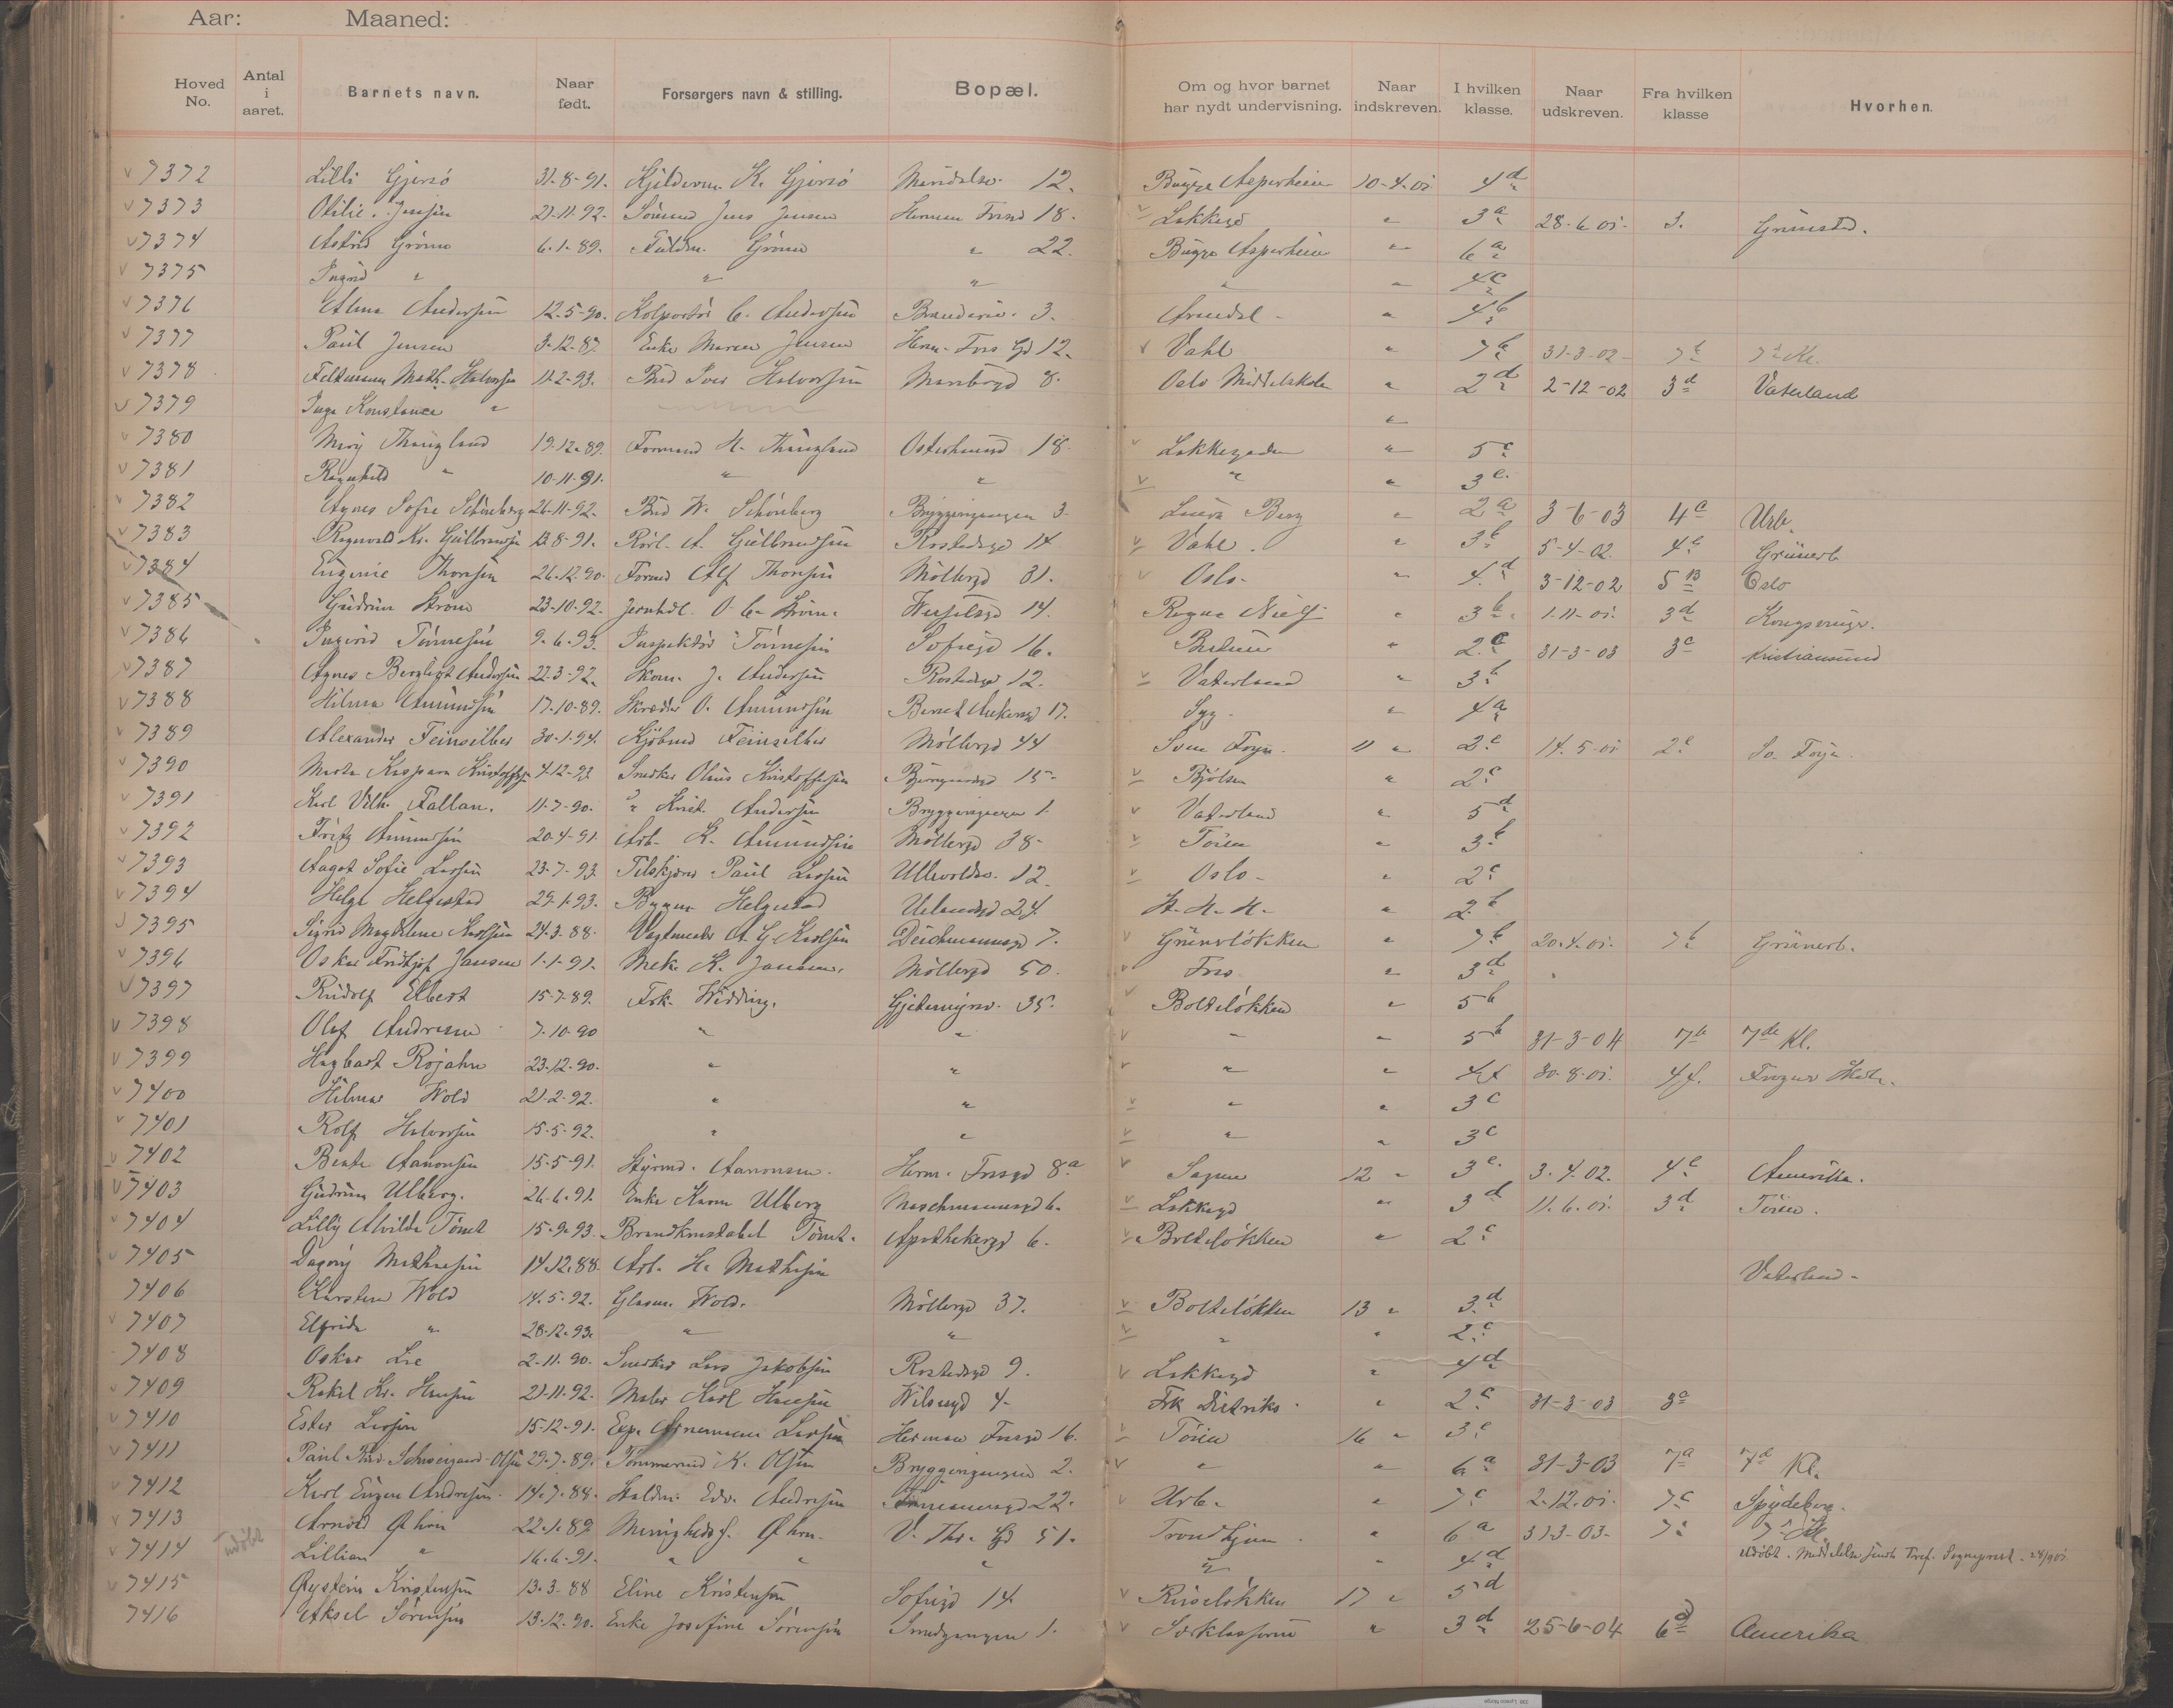 Aar: Maaned:
Hoved No. Antal i aaret. Barnets navn. Naar født. Forsørgers navn & stilling. Bopæl. Om og hvor barnet har nydt undervisning. Naar indskreven. I hvilken klasse. Naar udskreven. Fra hvilken klasse Hvorhen.
7372 Lilli Gjersö 31-8-91. K. Gjersö 12. Bugge Asperheim 10-4-01 4d
7373 Otilie Jensen 21-11-92. Jens Jensen Herman Fossgd 18. Lakkegd " 3a 28-6-01. 3. Grimstad.
7374 Astrid Grönn 6-1-89. Fuldm. Grönn " 22. Bugge Asperheim " 6a
7375 Ingrid " " " " " 4c
7376 Alma Andersen 12-5-90. Kolportör C. Andersen 3. Arendal " 4b
7377 Paul Jensen 3-12-87. Enke Maren Jensen Herm. Foss Gd 12. Vahl " 7b 31-3-02 7b 7de Kl.
7378 Math. Halvorsen 11-2-93. Bud Iver Halvorsen 8. Oslo Middelskole " 2d 2-12-02 3d Vaterland
7379 Inga Konstance " "
7380 19-12-89. Formand H. Osterhausgd 18. Lakkegaden " 5c
7381 Ragnhild " 10-11-91. " " " " 3c
7382 Agnes Sofie Schöneberg 26-11-92. Bud W. Schöneberg Bryggergangen 3. Berg " 2a 3-6-03 4a Urb.
7383 Ragnvald Kr. Gulbrandsen 13-8-91. Rörl. A. Gulbrandsen Rostedsgd 14 Vahl. " 3b 5-4-02. 4c Grünerl.
7384 Eugenie Thorsen 26-12-90. Formd Alf Thorsen Möllergd 31. Oslo " 4d 3-12-02 5B Oslo
7385 Gudrun Ström 23-10-92. Jernhdl. O. C. Ström. Wesselsgd 14. Ragna Niels " 3b 1-11-01. 3d Kongsvinger.
7386 Ingerid Tönnesen 9-6-93. Inspektör Tönnesen Sofiegd 16. " 2c 31-3-03 3c Kristiansund
7387 Agnes Bergliot Andersen 22-3-92. Skom. J. Andersen Rostedsgd 12. Vaterland " 3b
7388 Hilma Amundsen 17-10-89. Skræder O. Amundsen Bernt Ankersgd 17. Syg. " 4a
7389 Alexander Feinsilber 30-1-94. Kjöbmd Feinsilber Möllergd 44 Sven Foyn. 11 " 2c 14-5-01 2c Sv. Foyn.
7390 Marta Kaspara Kristoffersen 4-12-92 Snedker Olaus Kristoffersen 15. Bjölsen " 2c
7391 Karl Vilh. Fallan. 11-7-90. " Krist. Andersen Bryggergangen 1. Vaterland " 5d
7392 Fritz Amundsen 20-4-91. Arb. K. Amundsen Möllergd 38. Töien " 3b
7393 Aagot Sofie Larsen 23-7-93. Paul Larsen Ullevoldsv. 12. Oslo " 2c
7394 Helga Helgestad 29-1-93. Bygm. Helgestad Uelandsgd 24. H. H. H. " 2b
7395 Sigrid Magdalene Karlsen 24-3-88. Vagtmester A. G. Karlsen Deichmannsgd 7. Grünerlökken " 7b 20-4-01. 7b Grünerl.
7396 Oskar Fridtjof Jansen 1-1-91. Mek. K. Jansen. Möllergd 50. Foss " 3d
7397 Rudolf Elbert 15-7-89. Frk. Widding. Gjetemyrsv. 35. Bolteløkken " 5b
7398 Olaf Andresen 7-10-90 " " " " 5b 31-3-04 7b 7de Kl.
7399 Hagbart Röjahn 23-12-90. " " " " 4f 30-8-01. 4f. Frogner Skole.
7400 Hilmar Wold 21-2-92. " " " " 3c
7401 Rolf Halvorsen 15-5-92. " " " " 3c
7402 Aanonsen 15-5-91. Styrmd. Aanonsen. Herm. Fossgd 8a Sagene 12 " 3c 3-4-02. 4c Amerika.
7403 Gudrun Ulberg. 26-6-91. Enke Karen Ulberg 6. Lakkegd " 3d 11-6-01. 3d Töien.
7404 Lilly Alvilde 15-9-93. Brandkonstabel Apothekergd 6. Bolteløkken " 2c
7405 Dagny Mathisen 14-12-88. Arb. H. Mathisen Vaterland.
7406 Karsten Wold 14-5-92. Glasm. Wold. Möllergd 37. Bolteløkken 13 " 3d
7407 Elfrida " 28-12-93. " " " " 2c
7408 Oskar Lie 2-11-90. Snedker Lars Jakobsen Rostedsgd 9. Lakkegd " 4d
7409 Rakel Kr. Hansen 21-11-92. Maler Karl Hansen Wilsesgd 4. Frk Dietriks. " 2c 31-3-03 3a
7410 Ester Larsen 15-12-91. Exp. Larsen Herman Fossgd 16. Töien 16 " 3c
7411 Paul Schweigaard Olsen 29-7-89. Tömmermd K. Olsen Bryggergangen 2. " " 6a 31-3-03 7a 7de Kl.
7412 Karl Eugen Andresen. 14-7-88. Edv. Andresen 22. Urb. " 7c 2-12-01. 7c Spydeberg.
7413 Arnold Öhrn 22-1-89 Menighedsf. Öhrn. V. Thr. Gd 51. Trondhjem. " 6a 31-3-03. 7c 7de Kl.
7414 udöbt Lillian " 16-6-91. " " " " " 4d Udöbt. Meddelelse sendt Tref. Sogneprest. 28/901
7415 Øystein Kristensen 13-3-88 Eline Kristensen Sofiegd 14. Ruseløkken 17 " 5d
7416 Aksel Sörensen 13-12-90. Enke Josefine Sörensen Smedgangen 1. Særklasserne " 3d 25-6-04 6d Amerika